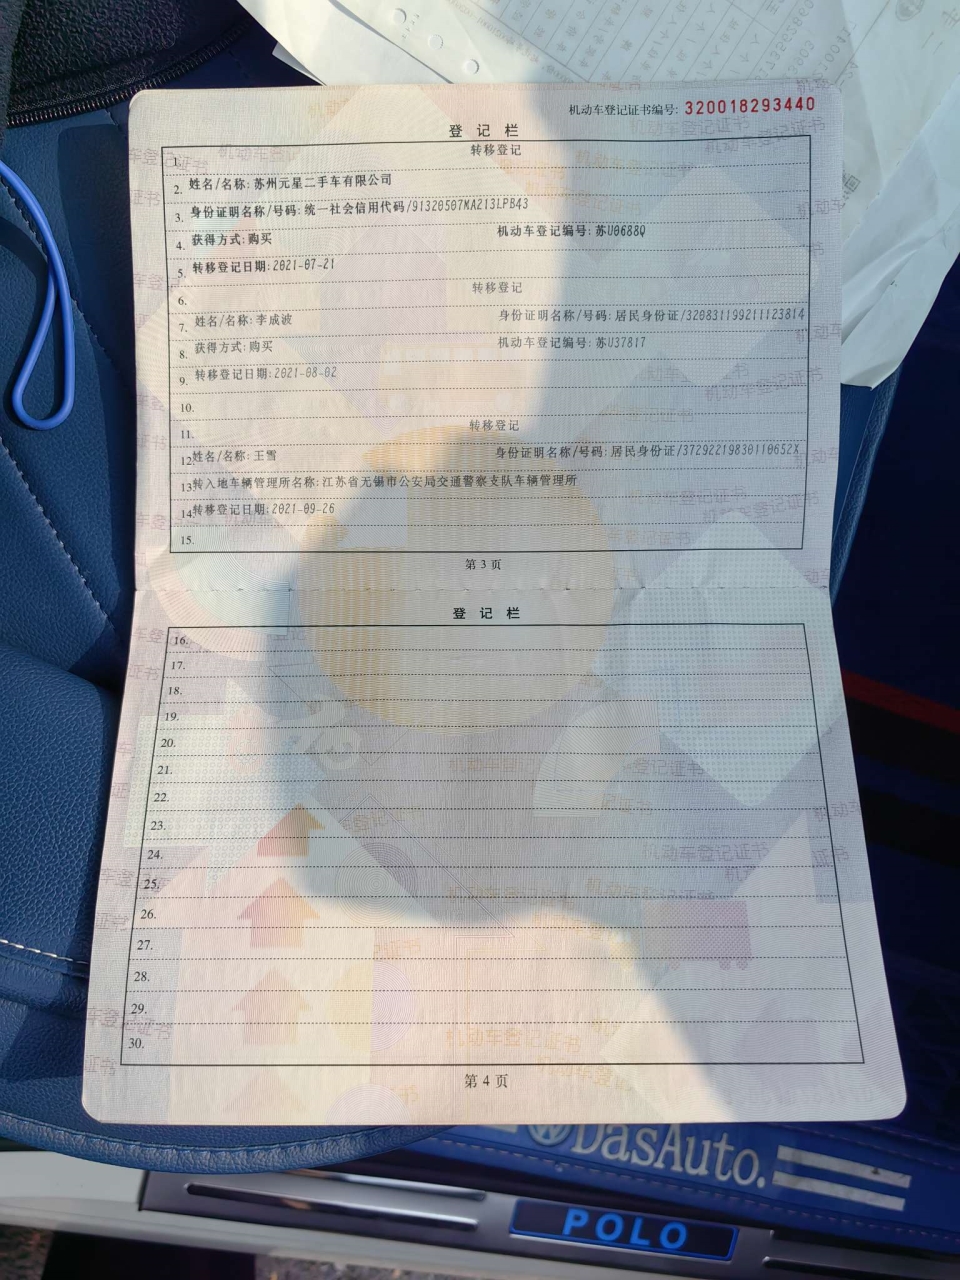 机动车登记证书编号: 320018293440
登 记 栏
1. 转移登记
2. 姓名/名称: 苏州元星二手车有限公司
3. 身份证明名称/号码: 统一社会信用代码/91320507MA213LPB43
4. 获得方式: 购买 机动车登记编号: 苏U0688Q
5. 转移登记日期: 2021-07-21
6. 转移登记
7. 姓名/名称: 李成波 身份证明名称/号码: 居民身份证/320831199211123814
8. 获得方式: 购买 机动车登记编号: 苏U37817
9. 转移登记日期: 2021-08-02
10.
11. 转移登记
12. 姓名/名称: 王雪 身份证明名称/号码: 居民身份证/37292219830110652X
13. 转入地车辆管理所名称: 江苏省无锡市公安局交通警察支队车辆管理所
14. 转移登记日期: 2021-09-26
15.
第 3 页
登 记 栏
16.
17.
18.
19.
20.
21.
22.
23.
24.
25.
26.
27.
28.
29.
30.
第 4 页
DasAuto.
POLO